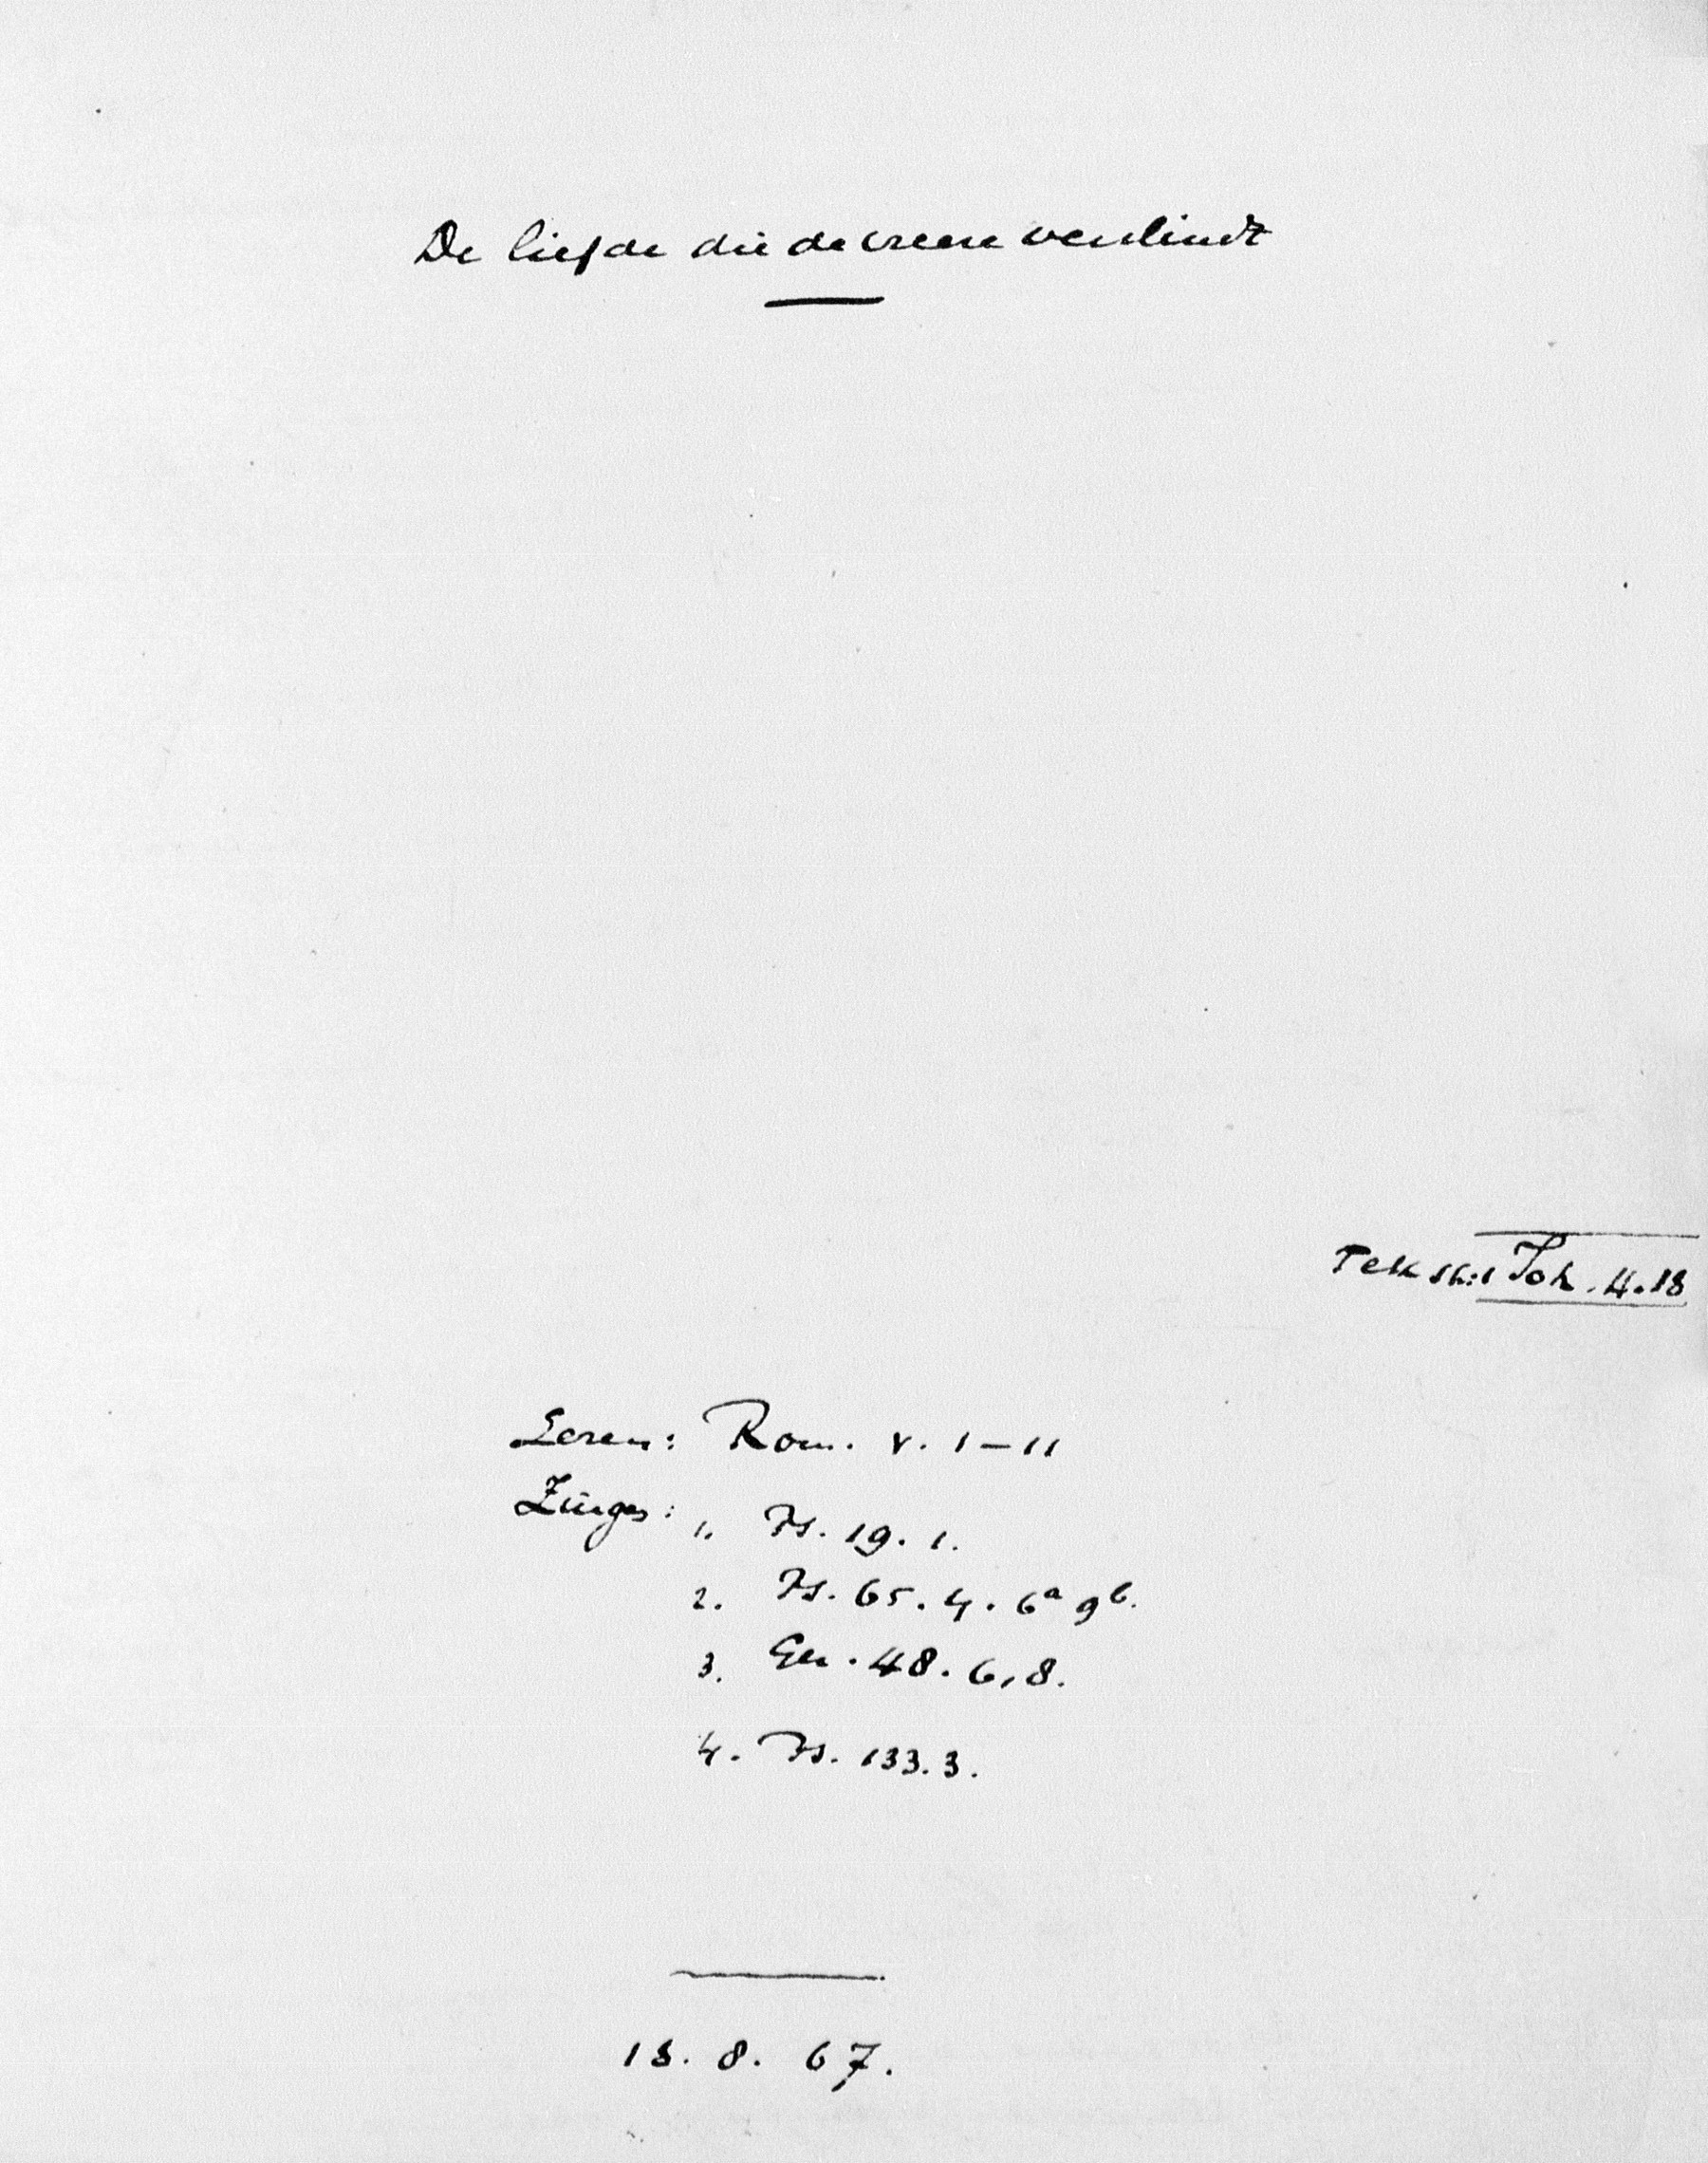 De liefde die de vrees verslindt
Tekst: 1 Joh. 4.18
Lezen: Rom. V. 1 – 11
Zingen: 1. Ps. 19. 1.
2. Ps. 65. 4. 6a 9b.
3. Gez. 48. 6, 8.
4. Ps. 133. 3.
13. 8. 67.